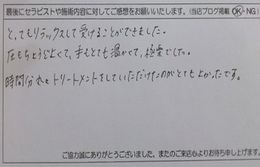 最後にセラピストや施術内容に対してご感想をお願いいたします。(当店ブログ掲載 OK・NG)
とってもリラックスして受けることができました。
圧もちょうどよくて、手もとても温かくて、極楽でした。
時間分丸々トリートメントをしていただけたのがとてもよかったです。
ご協力誠にありがとうございました。またのご来店心よりお待ち申し上げます。